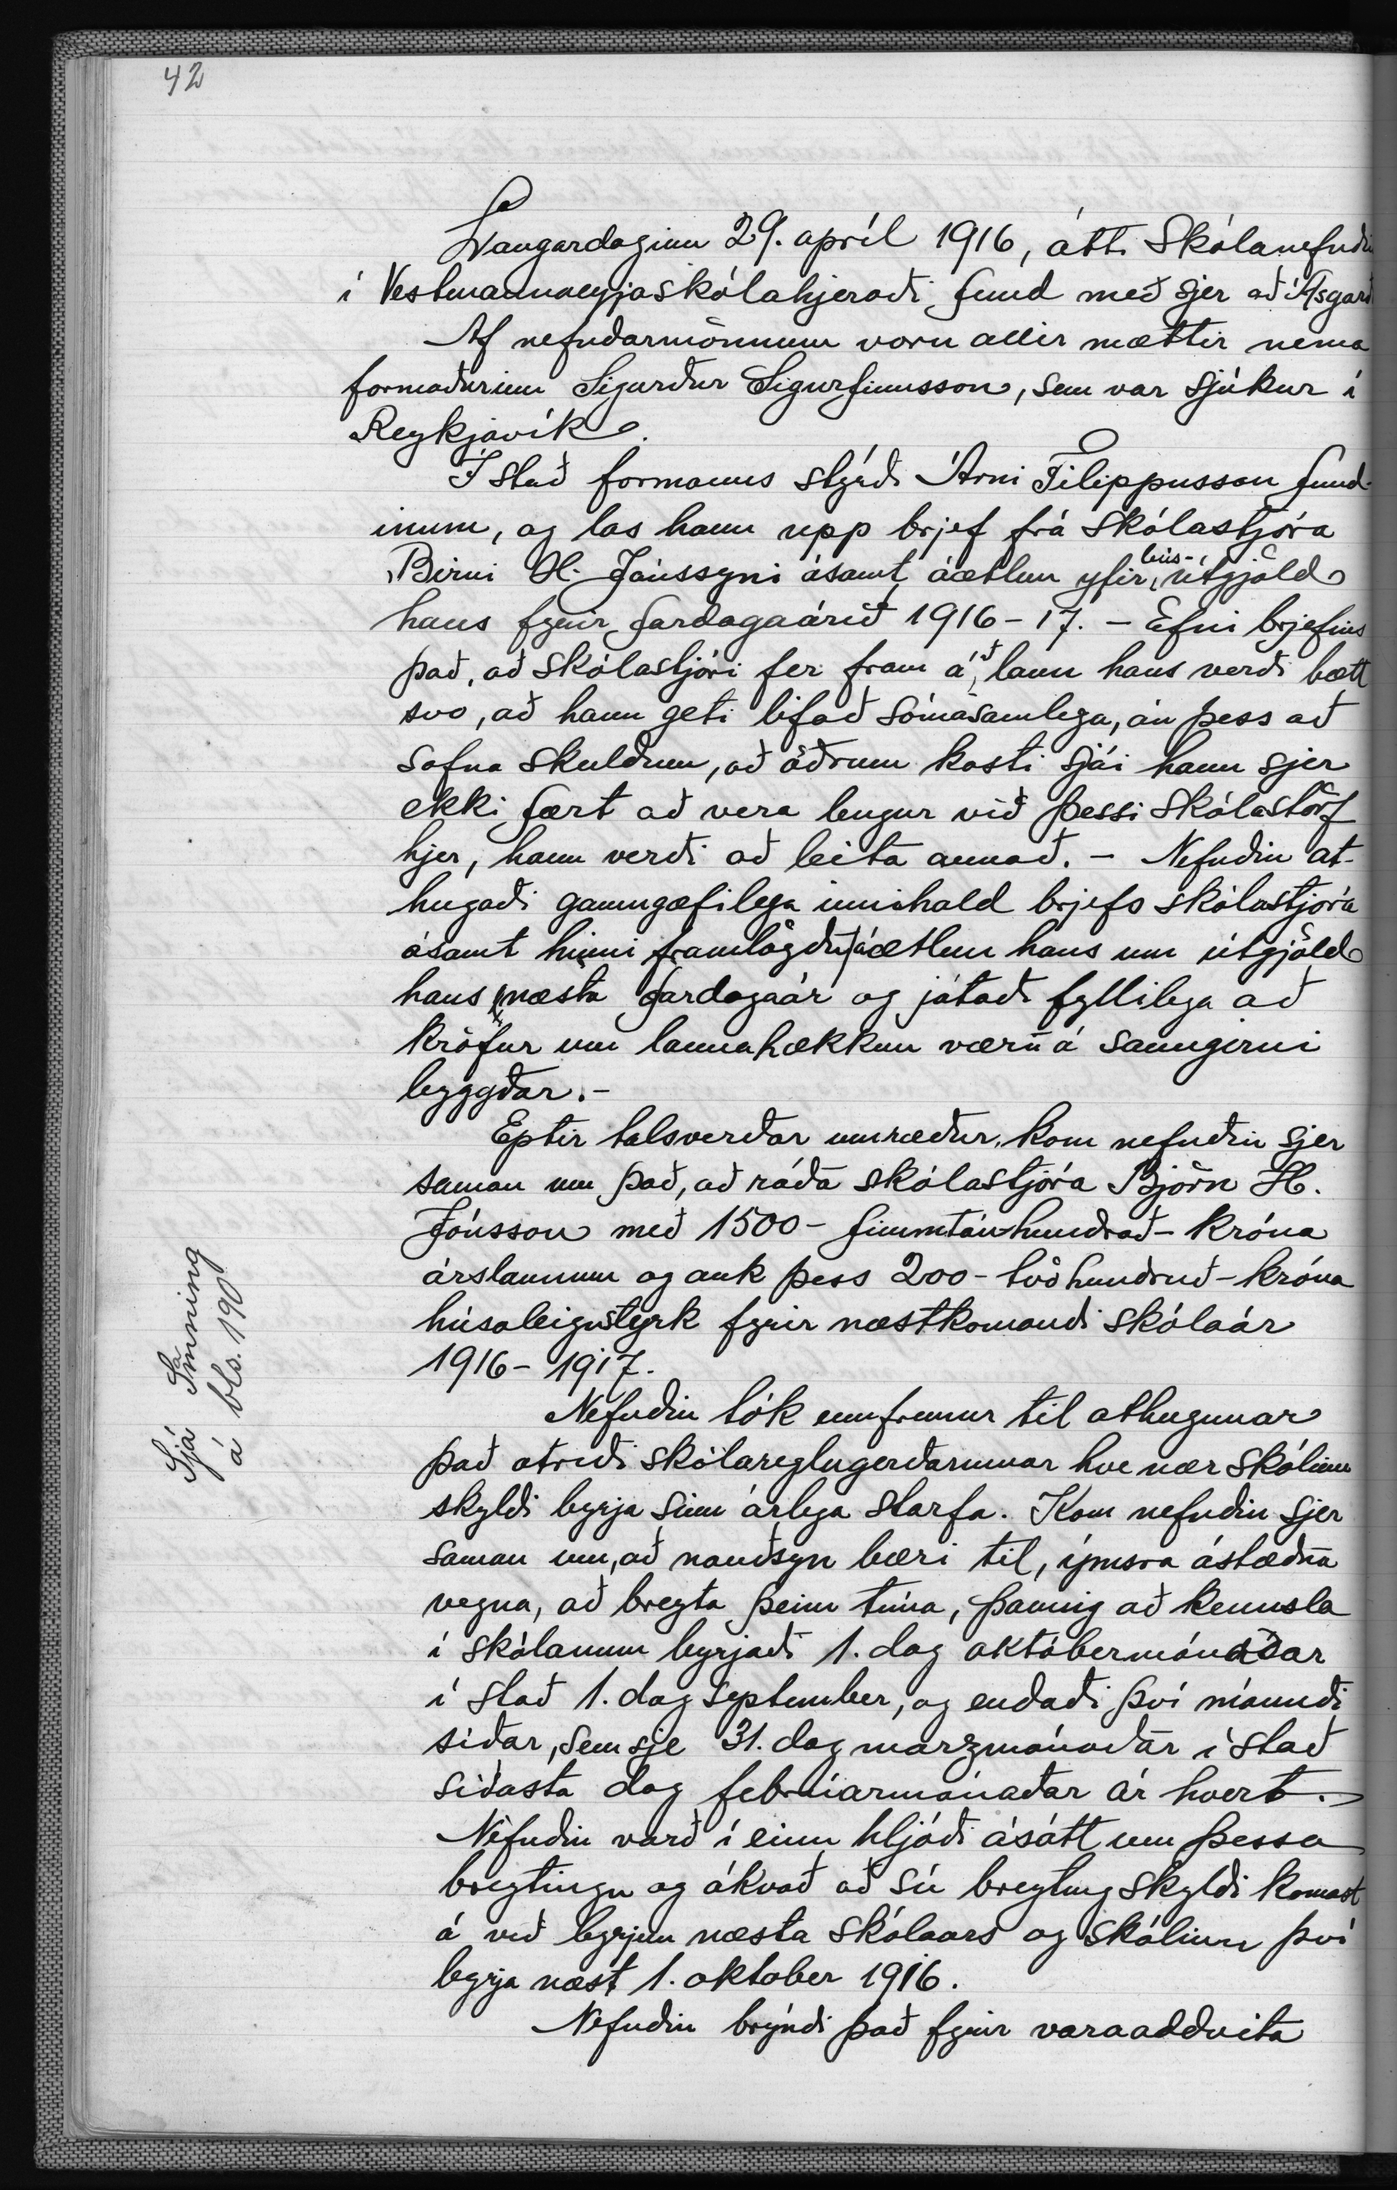 42
Laugardaginn 29. apríl 1916, átti Skólanefndin
í Vestmannaeyjaskólahjeraði fund með sjer að Ásgarði
Af nefndarmönnum voru allir mættir nema
formaðurinn Sigurður Sigurfinnsson, sem var sjúkur í
Reykjavík.
Í stað formanns stýrði Árni Filippusson fund-
inum, og las hann upp brjef frá skólastjóra
Birni H. Jónssyni ásamt áætlun yfir bús-útgjöld
hans fyrir fardagaárið 1916-17. - Efni brjefsins
það, að skólastjóri fer fram á, að laun hans verði bætt
svo, að hann geti lifað sómasamlega, án þess að
safna skuldum, að öðrum kosti sjái hann sjer
ekki fært að vera lengur við þessi skólastörf
hjer, hann verði að leita annað. - Nefndin at-
hugaði gaumgæfilega innihald brjefs skólastjóra
ásamt hinni framlögðu áætlun hans um útgjöld
hans næsta fardagaár og játaði fyllilega að
kröfur um launahækkun væru á sanngirni
byggðar. -
Eptir talsverðar umræður, kom nefndin sjer
saman um það, að ráða skólastjóra Björn H.
Jónsson með 1500 - fimmtánhundrað - króna
árslaunum og auk þess 200 - tvöhundruð - króna
húsaleigustyrk fyrir næstkomandi skólaár
1916 - 1917.
Nefndin tók ennfremur til athugunar
það atriði skólareglugerðarinnar hve nær skólinn
skyldi byrja sinn árlega starfa. Kom nefndin sjer
saman um, að nauðsyn bæri til, ýmsra ástæðna
vegna, að breyta þeim tíma, þannig að kennsla
í skólanum byrjaði 1. dag októbermánaðar
í stað 1. dag september, og endaði því mánuði
síðar, sem sje 31. dag marzmánaðar í stað
síðasta dag febrúarmánaðar ár hvert.
Nefndin varð í einu hljóði ásátt um þessa
breytingu og ákvað að sú breyting skyldi komast
á við byrjun næsta skólaárs og skólinn því
byrja næst 1. oktober 1916.
Nefndin brýndi það fyrir varaoddvita
Sjá Samning
á bls. 190